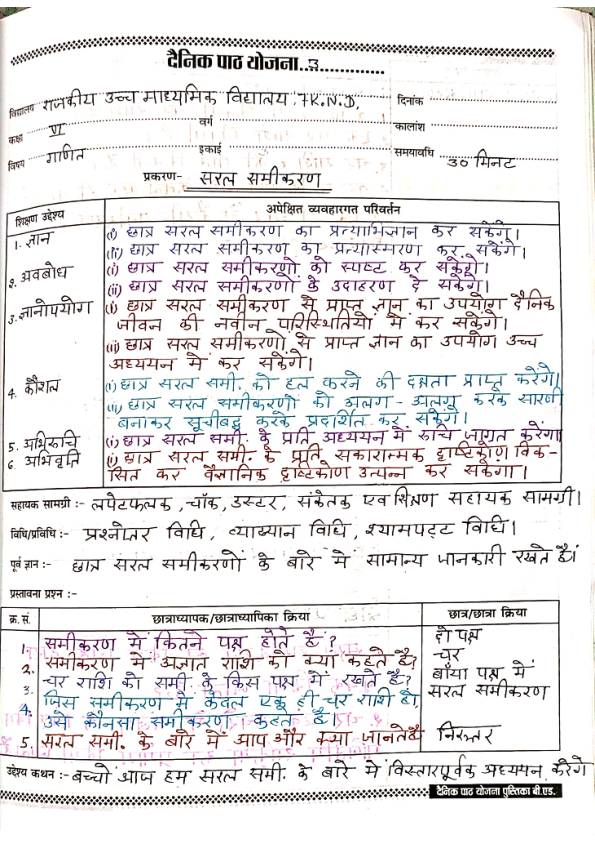 दैनिक पाठ योजना..3.............
विद्यालय राजकीय उच्च माध्यमिक विद्यालय, 7K.N.D. दिनांक
कक्षा VI वर्ग कालांश
विषय गणित इकाई समयावधि 30 मिनट
प्रकरण- सरल समीकरण
शिक्षण उद्देश्य अपेक्षित व्यवहारगत परिवर्तन
1. ज्ञान (i) छात्र सरल समीकरण का प्रत्याभिज्ञान कर सकेंगे।
(ii) छात्र सरल समीकरण का प्रत्यास्मरण कर सकेंगे।
2. अवबोध (i) छात्र सरल समीकरणो को स्पष्ट कर सकेंगे।
(ii) छात्र सरल समीकरणों के उदाहरण दे सकेंगे।
3. ज्ञानोपयोग (i) छात्र सरल समीकरण से प्राप्त ज्ञान का उपयोग दैनिक
जीवन की नवीन परिस्थितियो में कर सकेंगे।
(ii) छात्र सरल समीकरणो से प्राप्त ज्ञान का उपयोग उच्च
अध्ययन में कर सकेंगे।
4. कौशल (i) छात्र सरल समी. को हल करने की दक्षता प्राप्त करेंगे।
(ii) छात्र सरल समीकरणों को अलग - अलग करके सारणी
बनाकर सूचीबद्ध करके प्रदर्शित कर सकेंगे।
5. अभिरुचि (i) छात्र सरल समी. के प्रति अध्ययन में रुचि जागृत करेगा।
6. अभिवृति (i) छात्र सरल समी. के प्रति सकारात्मक दृष्टिकोण विक-
सित कर वैज्ञानिक दृष्टिकोण उत्पन्न कर सकेगा।
सहायक सामग्री :- लपेटफलक, चॉक, डस्टर, संकेतक एवं शिक्षण सहायक सामग्री।
विधि/प्रविधि :- प्रश्नोतर विधि, व्याख्यान विधि, श्यामपट्ट विधि।
पूर्व ज्ञान :- छात्र सरल समीकरणों के बारे में सामान्य जानकारी रखते है।
प्रस्तावना प्रश्न :-
क्र. सं. छात्राध्यापक/छात्राध्यापिका क्रिया छात्र/छात्रा क्रिया
1. समीकरण में कितने पक्ष होते है? दो पक्ष
2. समीकरण में अज्ञात राशि को क्या कहते है? चर
3. चर राशि को समी. के किस पक्ष में रखते है? बाँया पक्ष में
4. जिस समीकरण में केवल एक ही चर राशि हो, सरल समीकरण
उसे कौनसा समीकरण कहते है।
5. सरल समी. के बारे में आप और क्या जानते है निरुत्तर
उद्देश्य कथन :- बच्चो आज हम सरल समी. के बारे में विस्तारपूर्वक अध्ययन करेंगे
दैनिक पाठ योजना पुस्तिका बी.एड.